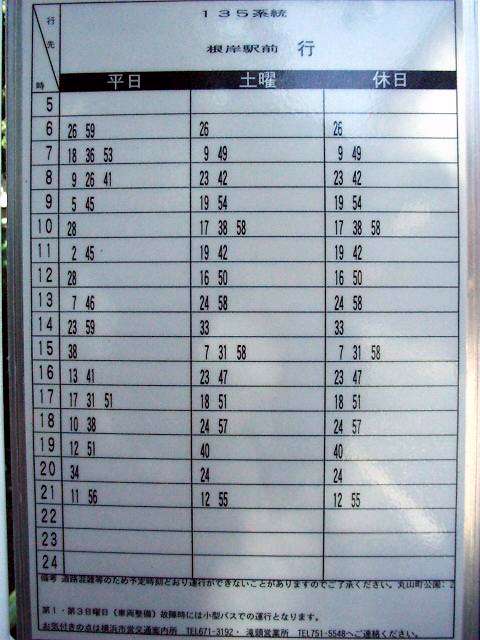 135系統
行先
根岸駅前 行
時 平日 土曜 休日
5
6 26 59 26 26
7 18 36 53 9 49 9 49
8 9 26 41 23 42 23 42
9 5 45 19 54 19 54
10 28 17 38 58 17 38 58
11 2 45 19 42 19 42
12 28 16 50 16 50
13 7 46 24 58 24 58
14 23 59 33 33
15 38 7 31 58 7 31 58
16 13 41 23 47 23 47
17 17 31 51 18 51 18 51
18 10 38 24 57 24 57
19 12 51 40 40
20 34 24 24
21 11 56 12 55 12 55
22
23
24
備考 道路混雑等のため予定時刻どおり運行ができないことがありますのでご了承ください。丸山町公園:
第1・第3日曜日(車両整備)故障時には小型バスでの運行となります。
お気付きの点は横浜市営交通案内所 TEL671-3192・ 滝頭営業所 TEL751-5548へご連絡ください。